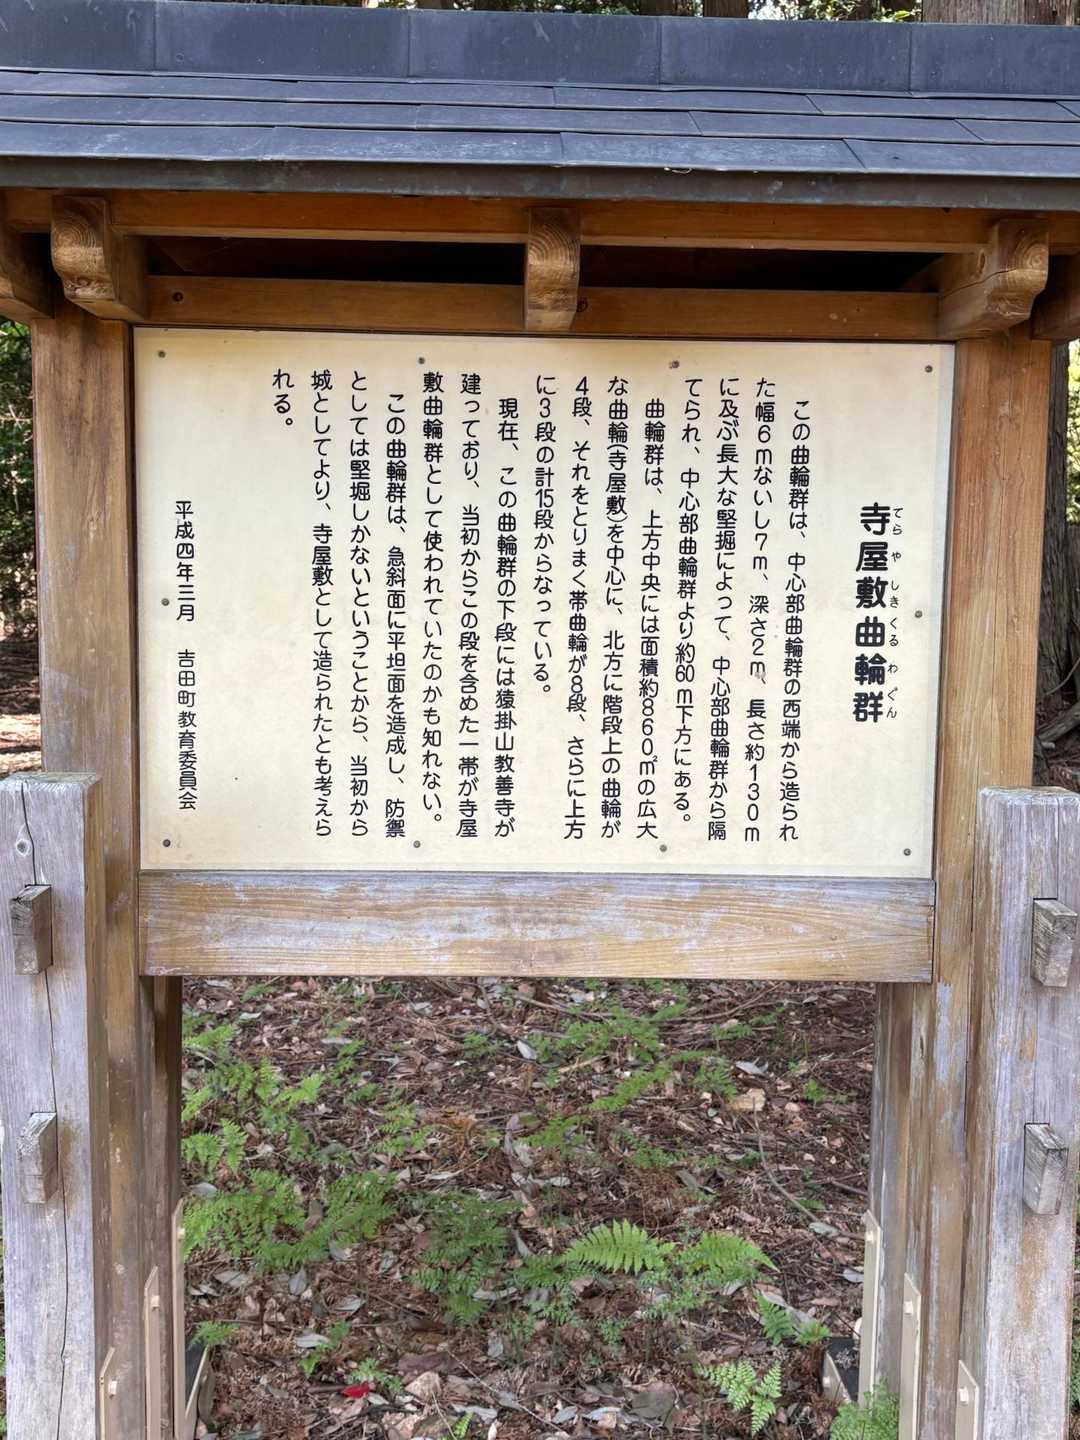 寺屋敷曲輪群
てらやしきくるわぐん
この曲輪群は、中心部曲輪群の西端から造られ
た幅6mないし7m、深さ2m、長さ約130m
に及ぶ長大な堅堀によって、中心部曲輪群から隔
てられ、中心部曲輪群より約60m下方にある。
曲輪群は、上方中央には面積約860㎡の広大
な曲輪(寺屋敷)を中心に、北方に階段上の曲輪が
4段、それをとりまく帯曲輪が8段、さらに上方
に3段の計15段からなっている。
現在、この曲輪群の下段には猿掛山教善寺が
建っており、当初からこの段を含めた一帯が寺屋
敷曲輪群として使われていたのかも知れない。
この曲輪群は、急斜面に平坦面を造成し、防禦
としては堅堀しかないということから、当初から
城としてより、寺屋敷として造られたとも考えら
れる。
平成四年三月 吉田町教育委員会